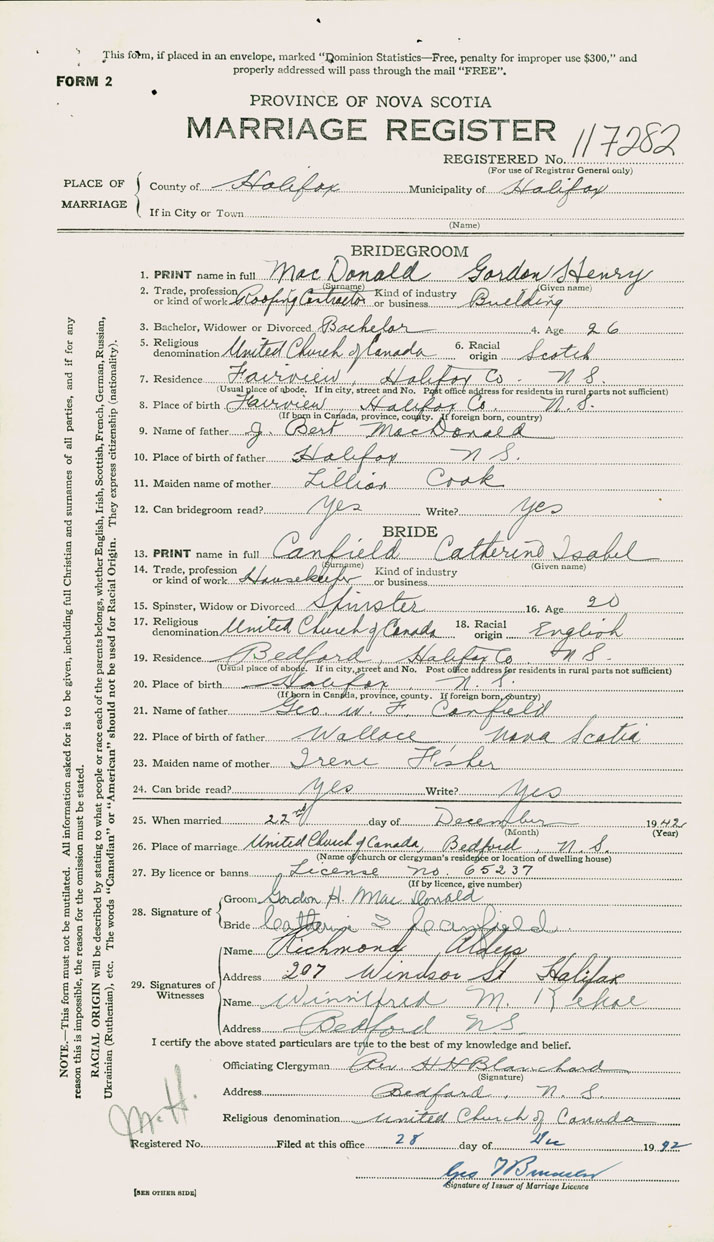 This form, if placed in an envelope, marked "Dominion Statistics—Free, penalty for improper use $300," and
properly addressed will pass through the mail "FREE".
FORM 2
PROVINCE OF NOVA SCOTIA
MARRIAGE REGISTER
REGISTERED No. 117282
(For use of Registrar General only)
PLACE OF MARRIAGE
County of Halifax Municipality of Halifax
If in City or Town
(Name)
BRIDEGROOM
1. PRINT name in full MacDonald Gordon Henry
(Surname) (Given name)
2. Trade, profession or kind of work Roofing Contractor Kind of industry or business Building
3. Bachelor, Widower or Divorced Bachelor 4. Age 26
5. Religious denomination United Church of Canada 6. Racial origin Scotch
7. Residence Fairview, Halifax Co. N.S.
(Usual place of abode. If in city, street and No. Post office address for residents in rural parts not sufficient)
8. Place of birth Fairview, Halifax Co. N.S.
(If born in Canada, province, county. If foreign born, country)
9. Name of father J. Bert MacDonald
10. Place of birth of father Halifax N S.
11. Maiden name of mother Lillian Cook
12. Can bridegroom read? Yes Write? Yes
BRIDE
13. PRINT name in full Canfield Catherine Isabel
(Surname) (Given name)
14. Trade, profession or kind of work Housekeeper Kind of industry or business
15. Spinster, Widow or Divorced Spinster 16. Age 20
17. Religious denomination United Church of Canada 18. Racial origin English
19. Residence Bedford, Halifax Co. N.S.
(Usual place of abode. If in city, street and No. Post office address for residents in rural parts not sufficient)
20. Place of birth Halifax, N.S.
(If born in Canada, province, county. If foreign born, country)
21. Name of father Geo W. F. Canfield
22. Place of birth of father Wallace Nova Scotia
23. Maiden name of mother Irene Fisher
24. Can bride read? Yes Write? Yes
25. When married 22nd day of December 1942
(Month) (Year)
26. Place of marriage United Church of Canada, Bedford, N.S.
(Name of church or clergyman's residence or location of dwelling house)
27. By licence or banns License no. 65237
(If by licence, give number)
28. Signature of
Groom Gordon H. MacDonald
Bride Catherine I Canfield
29. Signatures of Witnesses
Name Richmond
Address 207 Windsor St Halifax
Name Winnifred M. Kehoe
Address Bedford NS
I certify the above stated particulars are true to the best of my knowledge and belief.
Officiating Clergyman Rev. H H Blanchard
(Signature)
Address Bedford, N.S.
Religious denomination United Church of Canada
Registered No. Filed at this office 28 day of Dec 1942
Geo
Signature of Issuer of Marriage Licence
[SEE OTHER SIDE]
NOTE.—This form must not be mutilated. All information asked for is to be given, including full Christian and surnames of all parties, and if for any
reason this is impossible, the reason for the omission must be stated.
RACIAL ORIGIN will be described by stating to what people or race each of the parents belongs, whether English, Irish, Scottish, French, German, Russian,
Ukrainian (Ruthenian), etc. The words "Canadian" or "American" should not be used for Racial Origin. They express citizenship (nationality).